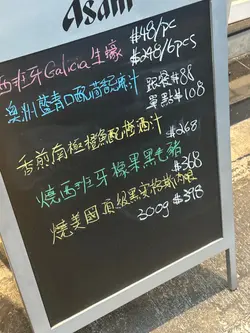 Asahi
西班牙Galicia生蠔 $48/pc
$248/6pcs
澳洲藍青口配蒜蓉麻汁 跟餐$88
單點$108
香煎南極橙魚配荷洒汁 $268
燒西班牙橡果黑毛豬 $368
燒美國頂級黑安格斯
200g $398